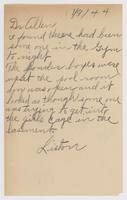 1/9/44
Dr Allen
I found there had been
some one in the Gym
to night
The powder boxes were
upset the pool room
door was open and it
looked as though some one
was trying to get into
the girls cage in the
basement.
Liston